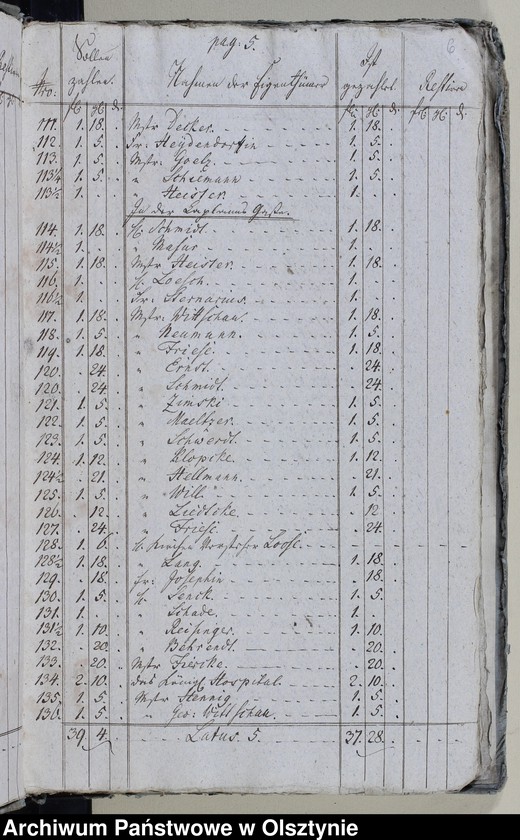 pag. 5. 6
Sollen zahlen. Ist gezahlt. Restirn
Nro. Nahmen der Eigenthümer
111. 1. 18. Mstr Decker. 1. 18.
112. 1. 5. Fr: Heydendorfin 1. 5.
113. 1. 5. Mstr: Goetz. 1. 5.
113¼ 1. 5. " Schiemann 1. 5.
113½ 1. " Heisser. 1.
In der Caplans Gasse.
114. 1. 18. H. Schmidt. 1. 18.
114½ 1. " Masur 1.
115. 1. 18. Mstr Heister. 1. 18.
116. 1. H. Loesch. 1.
116½ 1. Fr: Sternarius. 1.
117. 1. 18. Mstr: Wittschau. 1. 18.
118. 1. 5. " Neumann. 1. 5.
119. 1. 18. " Friese. 1. 18.
120. 24. " Ernst. 24.
120. 24. " Schmidt. 24.
121. 1. 5. " Zimski 1. 5.
122. 1. 5. " Maeltzer. 1. 5.
123. 1. 5. " Schwerdt. 1. 5.
124. 1. 12. " Klopcke. 1. 12.
124½ 21. " Stellmann. 21.
125. 1. 5. " Will. 1. 5.
126. 12. " Liedtcke. 12
127. 24. " Friese. 24.
128. 1. 6. H. Kirchen Vorsteher Loose.
128½ 1. 18. " Lang. 1. 18.
129. 18. Fr: Josephin 18.
130. 1. 5. H. Senck. 1. 5.
131. 1. " Schade. 1.
131½ 1. 10. " Reisinger. 1. 10.
132. 20. " Behrendt. 20.
133. 20. Mstr Fiercke. 20.
134. 2. 10. das Königl. Hospital. 2. 10.
135. 1. 5. Mstr Hennig 1. 5.
136. 1. 5. " Geo: Wittschau. 1. 5.
39. 4. Latus. 5. 37. 28.
Archiwum Państwowe w Olsztynie